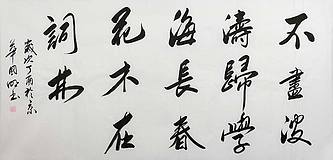 不盡波
濤歸學
海長春
花木在
詞林
歲次丁酉於京
華周明書